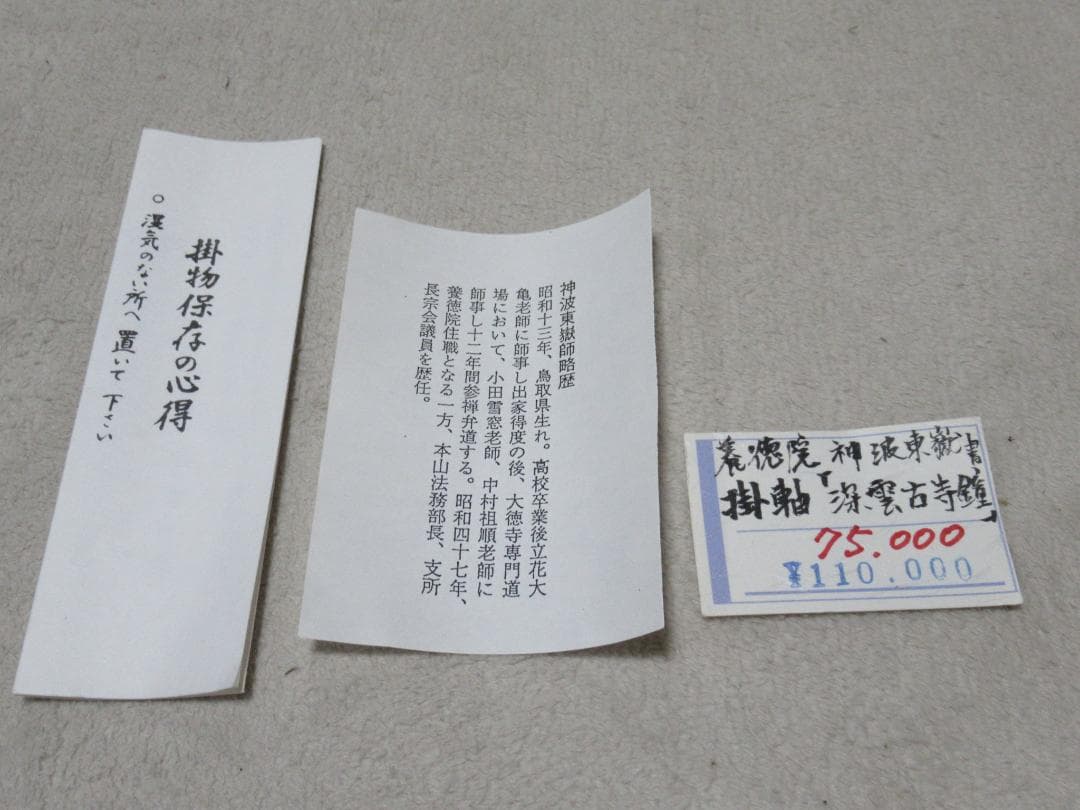 掛物保存の心得
○ 湿気のない所へ 置いて 下さい
神波東嶽師略歴
昭和十三年、鳥取県生れ。高校卒業後立花大
亀老師に師事し出家得度の後、大徳寺専門道
場において、小田雪窓老師、中村祖順老師に
師事し十二年間参禅弁道する。昭和四十七年、
養徳院住職となる一方、本山法務部長、支所
長宗会議員を歴任。
養徳院 神波東嶽書
掛軸「深雲古寺鐘」
75.000
¥110.000